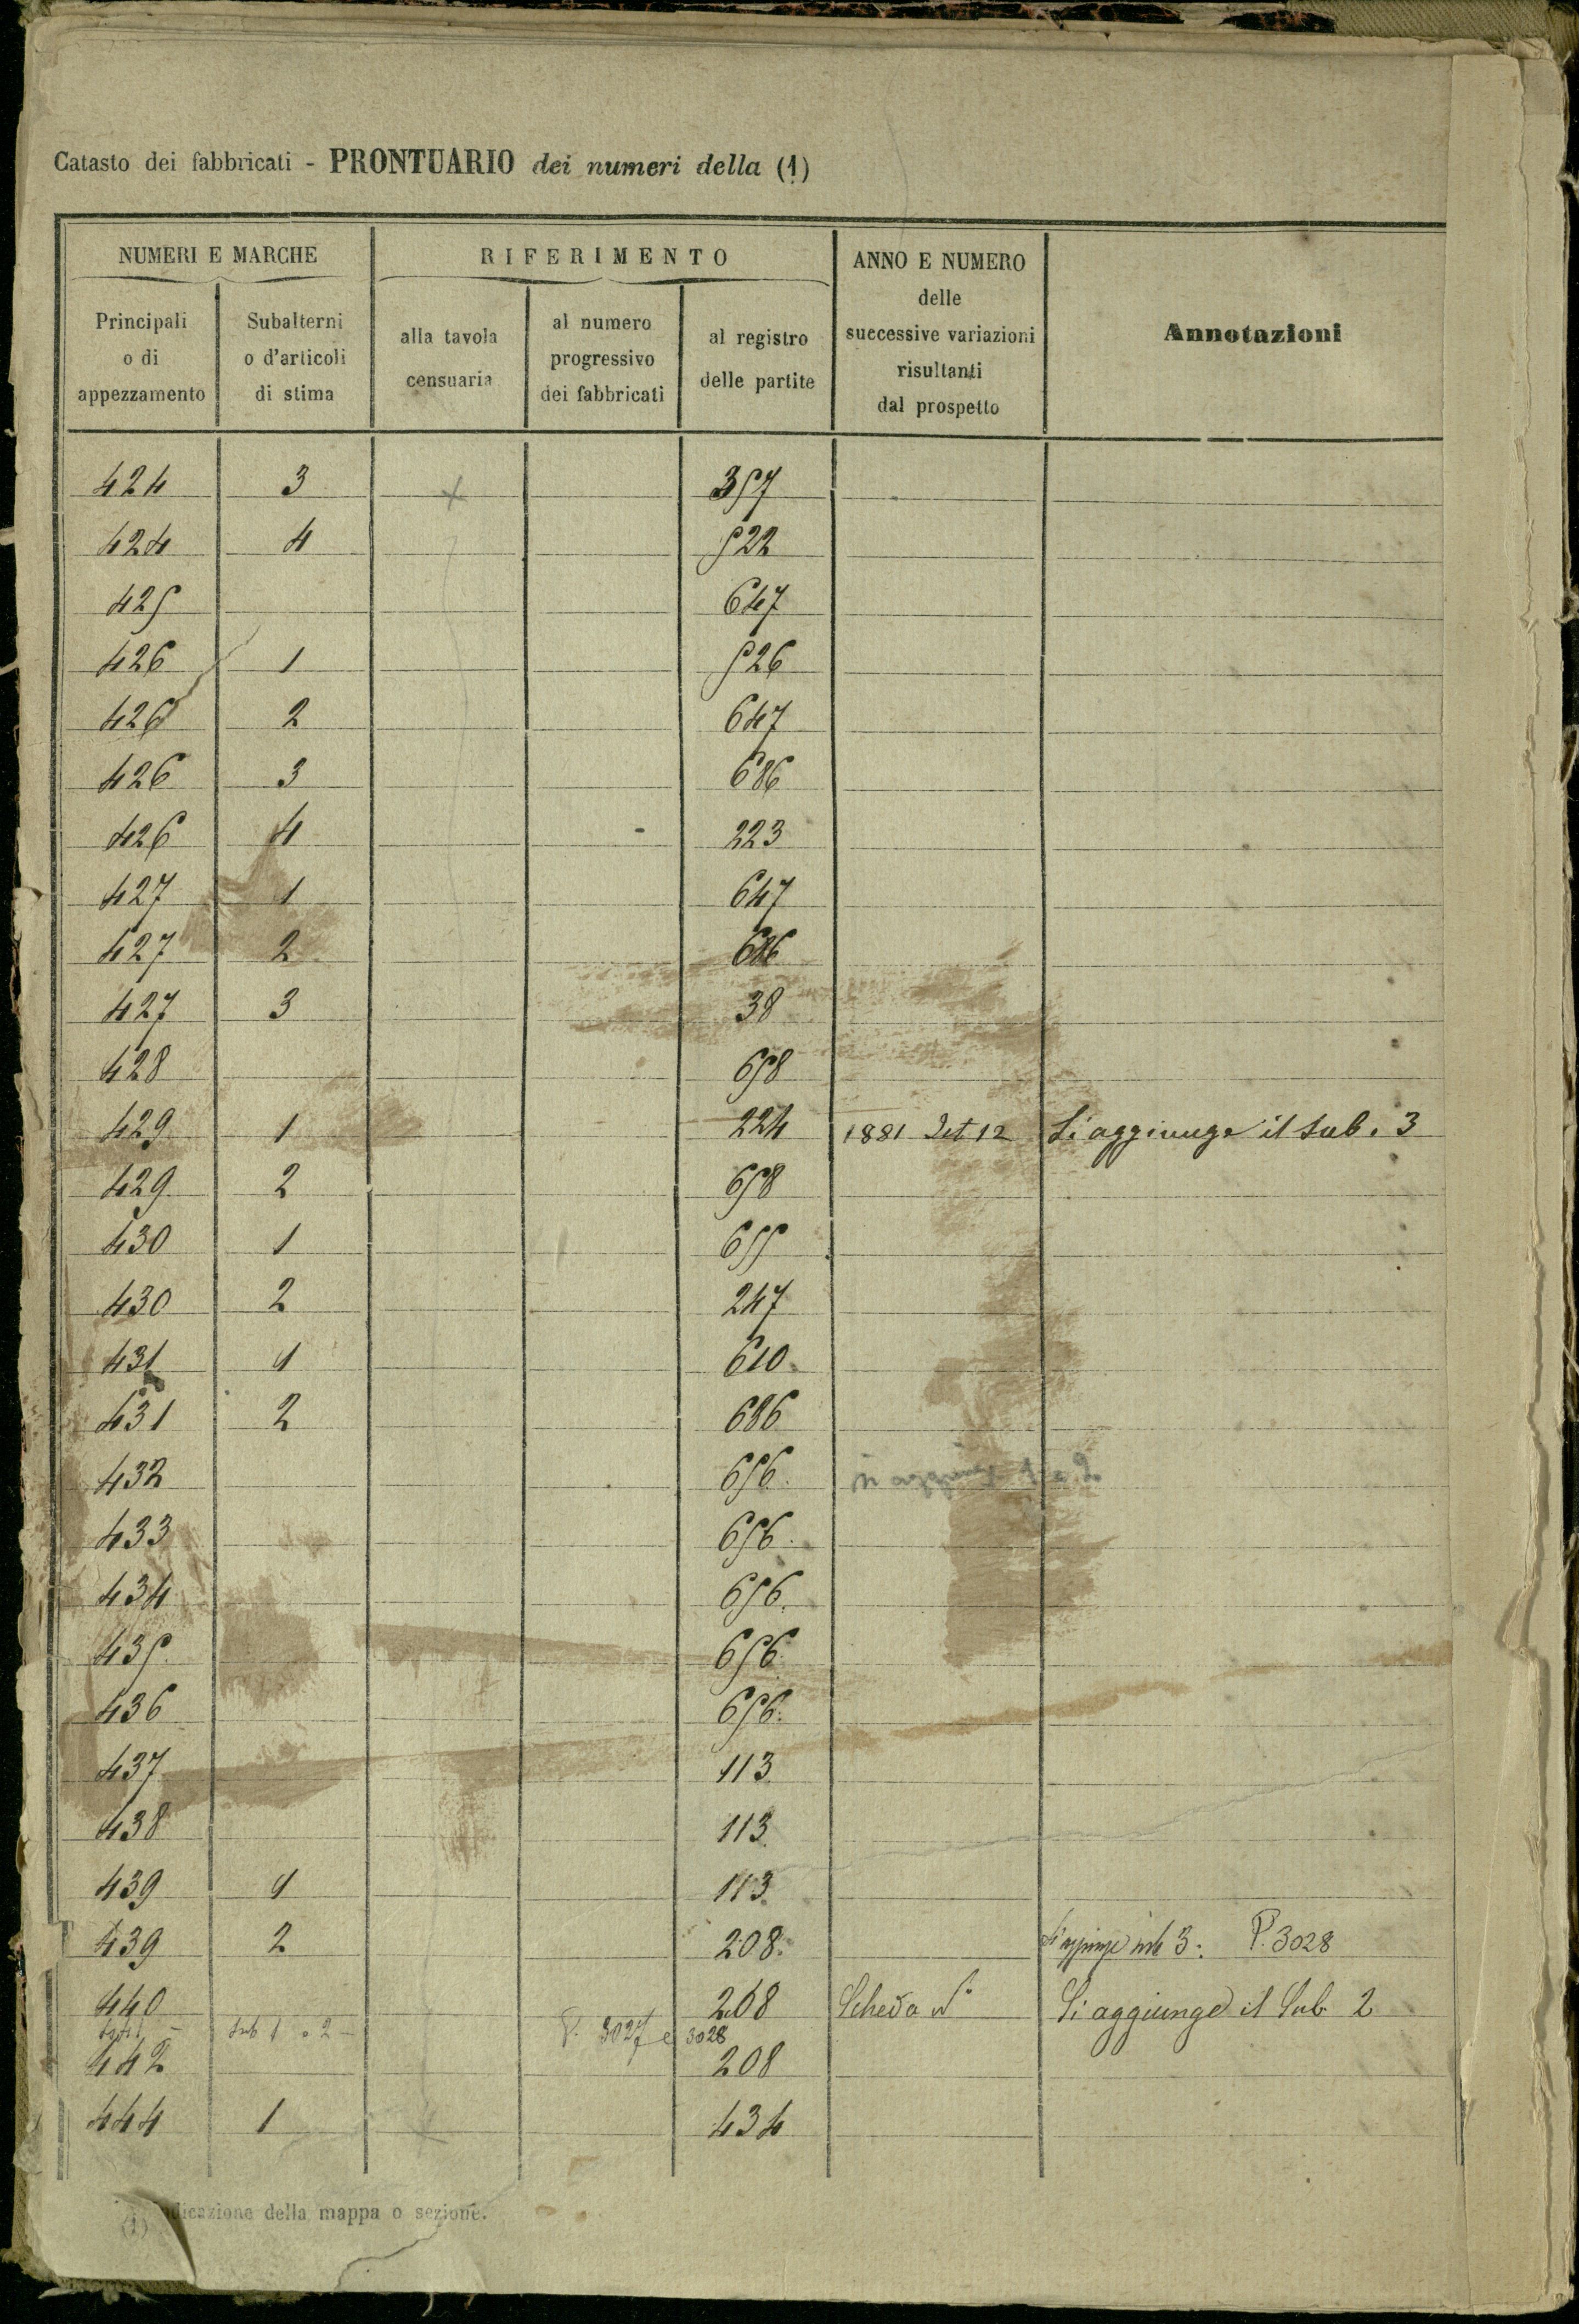 Catasto dei fabbricati - PRONTUARIO dei numeri della (1)
NUMERI E MARCHE
RIFERIMENTO
ANNO E NUMERO
delle
successive variazioni
risultanti
dal prospetto
Annotazioni
Principali
o di
appezzamento
Subalterni
o d'articoli
di stima
alla tavola
censuaria
al numero
progressivo
dei fabbricati
al registro
delle partite
424 3 357
424 4 522
425 647
426 1 526
426 2 647
426 3 686
426 4 223
427 1 647
427 2 686
427 3 38
428 658
429 1 224 1881 Set 12 Si aggiunge il sub. 3
429 2 658
430 1 655
430 2 247
431 1 610
431 2 686
432 656 si aggiunge
433 656
434 656
435 656
436 656
437 113
438 113
439 1 113
439 2 208 Si aggiunge 3. P. 3028
440 208 Scheda N° Si aggiunge il Sub. 2
sub 1 2 3027 e 3028
442 208
444 1 434
(1) dicazione della mappa o sezione.